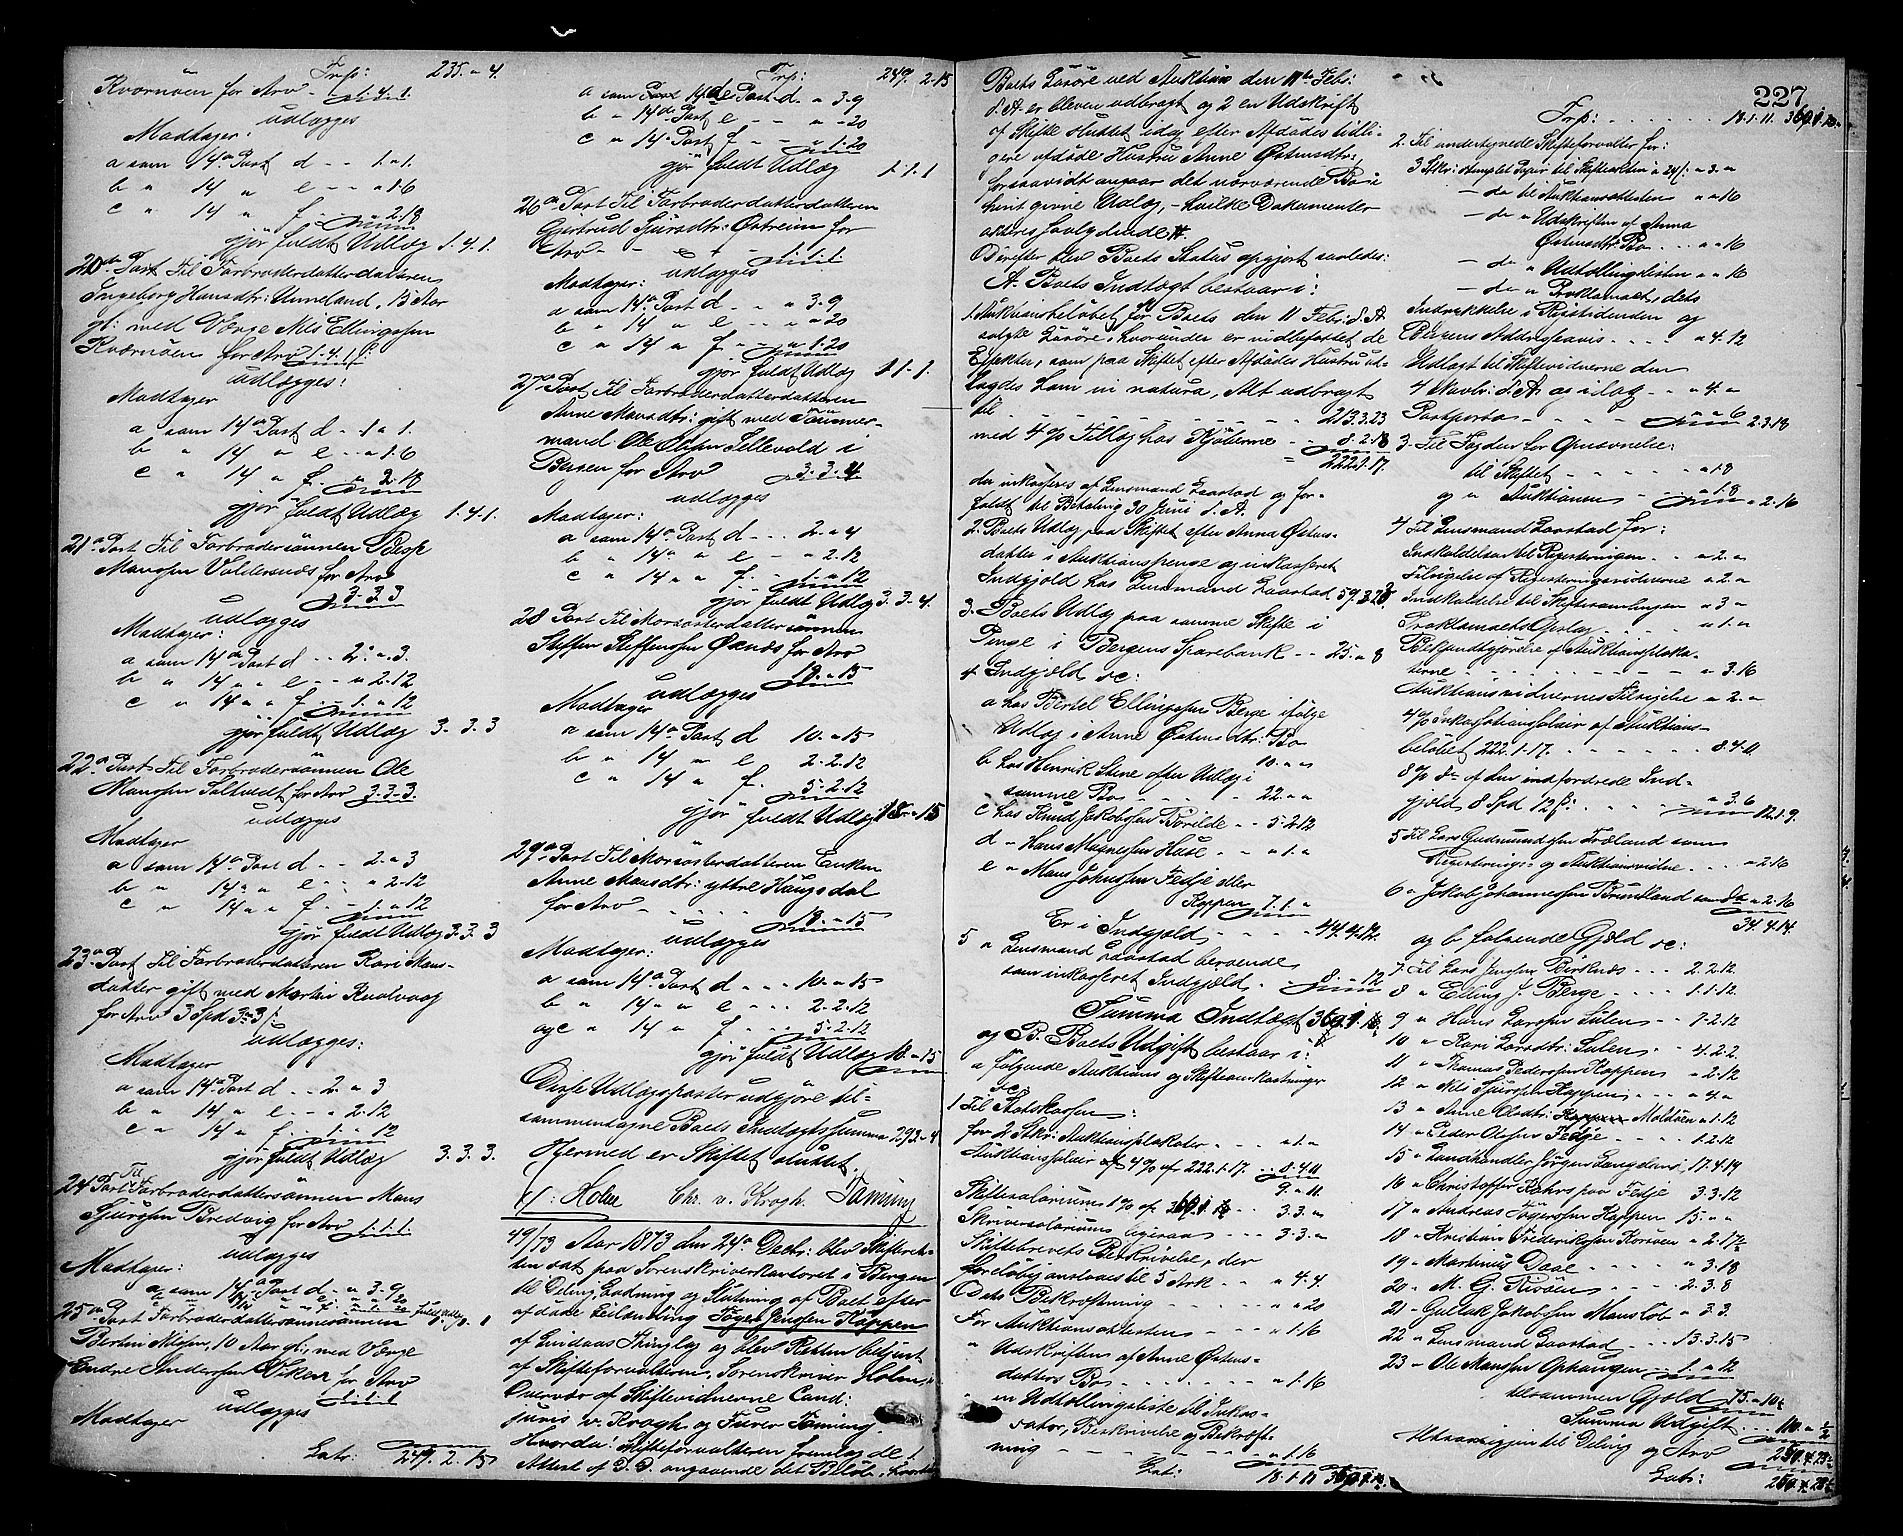 Trsp: 235. " 4.
Kvernøen for Arv - 1. 4. 1.
udlægges
Modtager:
a som 14a Post d - - 1. " 1.
b " 14 " e - - " 1. 6
c " 14 " f. - " 2. 18
gjør fuldt Udlæg 1. 4. 1.
20de Post Til Farbroderdatterdatteren
Ingeborg Hansdtr: Unneland, 15 Aar
gl: med Værge Nils Ellingssen
Kværnøen for Arv 1. 4. 1
udlægges:
Modtager
a som 14a Post d - - 1 " 1.
b " 14 " e - - " 1. 6
c " 14 " f. - " 2. 18
gjør fuldt Udlæg 1. 4. 1.
21a Post Til Farbrodersønnen
Mansen for Arv
3. 3. 3
udlægges
Modtager:
a som 14a Post d - - 2. " 3.
b " 14 " " e - - " 2. 12
c " 14 " " f. - - 1. " 12
gjør fuldt Udlæg 3. 3. 3
22a Post Til Farbrodersønnen Ole
Mansen for Arv 3. 3. 3.
udlægges
Modtager
a som 14a Post d - - 2. " 3
b " 14 " " e - - " 2. 12
c " 14 " " f. - - 1. " 12
gjør fuldt Udlæg 3. 3. 3
23a Post Til Farbroderdatteren Kari Mans-
datter gift med Martin
for Arv 3 Spd 3 3 ß:
udlægges:
Modtager
a som 14a Post d - - 2. " 3
b " 14 " e - - " 2. 12
c " 14 " f. - - 1. " 12
gjør fuldt Udlæg 3. 3. 3.
24 Post Til Farbroderdattersønnen Mans
Sjursen Bredvig for Arv 1. 1. 1
udlægges
Modtager:
a som 14a Post d - - " 3. 9
25de Post Farbroderdattersønnesønnen
Bertin Nilsen, 10 Aar gl: med Værge
Endre Andersen Viken for Arv
1. 1. 1
udlægges
Modtager
Lats: 249. 2. 15
Trsp: 249. 2. 15
a som 14de Post d - " 3. 9
b " 14de Post e - - " " 20
c " 14. Post f. - - " 1. 20
gjør fuldt Udlæg 1. 1. 1
26a Post Til Farbroderdatterdatteren
Gjertrud Sjursdtr: Østreim for
Arv - - - - 1. 1. 1.
udlægges
Modtager:
a som 14a Post d - - " 3. 9
b " 14 " e - - " " 20
c " 14 " f. - - " 1. 20
gjør fuldt Udlæg 1. 1. 1.
27a Post Til Farbroderdatterdatteren
Anne Mansdtr: gift med Tømmer-
mand Ole Olsen Sellevold i
Bergen for Arv 3. 3. 4
udlægges
Modtager:
a som 14a Post d - - - 2. " 4
b " 14 " " e - - " 2. 12
c " 14 " " f. - - 1. " 12
gjør fuldt Udlæg 3. 3. 4.
28 Post Til Morsøsterdattersønnen
Steffen Steffensen Øksnæs for Arv
18. " 15
udlægges
Modtager
a som 14a Post d 10. " 15
b " 14 " e 2. 2. 12
c " 14 " f. 5. 2. 12
gjør fuldt Udlæg 18. " 15
29a Post Til Morsøsterdatteren Enken
Anne Mansdtr: yttre Haugsdal
for Arv - - - - 18. " 15
udlægges
Modtager:
a som 14a Post d - - - 10. " 15
b " 14 " e - - 2. 2. 12
og c " 14 " f. - - 5. 2. 12
gjør fuldt Udlæg 18. " 15
Disse Udlægsposter udgjøre til-
sammentagne Boets Indtægtssumma 293. " 4
Hermed er Skiftet sluttet.
Holm Chr. v. Krogh. Tanning
49/73 Aar 1873 den 24de Decbr: blev Skifteret-
ten sat paa Sorenskriverkontoret i Bergen
til Deling, Lodning og Slutning af Boet efter
afdøde Leilending Tøger Jensen Kappen
af Lindaas Thinglag og blev Retten betjent
af Skifteforvalteren, Sorenskriver Holm, i
Overvær af Skiftevidnerne Cand:
juris v. Krogh og Furer Tanning.
Hvorda: Skifteforvalteren fremlagde 1.
Attest af D. D. angaaende det Beløb, hvortil
Boets Løsøre ved Auktion den 11te Febr:
d. A. er bleven udbragt og 2 en Udskrift
af Skifte sluttet idag efter Afdødes tidli-
gere afdøde Hustru Anne Østensdtr:,
forsaavidt angaar det nærværende Bo i
hint givne Udlæg, - hvilke Dokumenter
alleres følgende
Derefter blev Boets Status opgjort saaledes:
A. Boets Indtægt bestaar i:
1. Auktionsbeløbet for Boets den 11 Febr: d. A.
solgte Løsøre, hvorunder er indbefattet de
Effekter, som paa Skiftet efter Afdødes Hustru ud-
lagdes ham in natura, Alt udbragt
til - - - - - - 213. 3. 23
med 4 % Tillæg hos Kjøberne - - 8. 2. 18
222. 1. 17.
der inkasseres af Lensmand Laastad og for-
faldt til Betaling 30 Juni d. A.
2. Boets Udlæg paa Skiftet efter Anna Østens-
datter i Auktionspenge og inkasseret
Indgjæld hos Lensmand Laastad 59. 3. 20
3. Boets Udlæg paa samme Skifte i
Penge i Bergens Sparebank - - 25. " 8
4 Indgjæld sc:
a hos Bertel Ellingsen Berge ifølge
Udlæg i Anne Østensdtr: Bo
10. " "
b hos Henrik Stene efter Udlæg i
samme Bo - - - - 22. " "
c hos Knud Jakobsen Børilde - - 5. 2. 12
d - Hans Magnesen Huse - - " 1. "
e " Mons Johnsen Fedje eller
Kappen 7. 1. "
Er i Indgjæld - - - - " 44. 4. 12.
5 " Lensmand Laastad beroende
som inkasseret Indgjæld - - 8. " 12
Summa Indtægt 360. 1.
og B. Boets Udgift bestaar i:
a følgende Auktions og Skifteomkostninger
sc:
1 Til Statskassen:
for 2 Stkr: Auktionsplakater - - - " 1. "
Auktionssalair af 4 % af 222. 1. 17. - - 8. 4. 11
9. " 11.
Skiftesalarium 1 % af 360. 1. - - 3. 3. "
Skriversalarium ligesaa - - - 3. 3. "
Skiftebrevets Beskrivelse, der
foreløbig ansættes til 5 Ark - - " 4. 4.
Dets Bekræftning - - - - " " 20
For Auktionsattesten - - - " 1. 16
" Udskriften af Anne Østens-
datters Bo - - - - " 1. 16
" en Udtællingsliste til Inkas-
sator, Beskrivelse og Bekræft-
ning - - - - " 1. 16
Lats: 18. 1. 11 360. 1.
227
Trsp: - - - - 18. 1. 11. 360. 1.
2. Til undertegnede Skifteforvalter for:
3 Stkr: stemplet Papir til Skifteakten a 24 ß: " 3. "
- do til Auktionsattesten " " 16
- do " Udskriften af Anna
Østensdtr: Bo - - - " " 16
- do " Udtællingslisten " " 16
- do " Proklamaet, dets
Indrykkelse i Rigstidenden og
Bergens Addresseavis - - - " 4. 12
Udlagt til Skiftevidnerne den
4 Novbr: d. A. og idag - - " 4. "
Postporto - - - - " " 6
23. 18
3. Til Fogden for Opnævnelse:
til Skiftet - - - - " 1. 8
og " Auktionen - - " 1. 8
" 2. 16
4 Til Lensmand Laastad for:
Indkaldelse til Registreringen - - " 2. "
Tilsigelse af Registreringsvidnerne " 2. "
Indkaldelse til Skiftesamlingen " 3 "
Proklamaets Opslag - - - " 1. "
Bekjendtgjørelse af Auktionsplaka-
terne - - - - - " 3. 16
Auktionsvidnernes Tilsigelse " 2. "
4 % Inkassationssalair af Auktions-
beløbet 222. 1. 17. - - - 8. 4. 11
8 % do af den indfordrede Ind-
gjæld 8 Spd 12 ß: - - - " 3. 6
12. 1. 9.
5 Til Lars Gudmundsen Fræland som
Registrerings- og Auktionsvidne - - - " 2. 16
6 " Jakob Johannessen Bruntland som do " 2. 16
34. 4. 14.
og b følgende Gjæld sc:
7 Til Lars Jensen Birknæs - - - 2. 2. 12
8 " Elling J. Berge - - - - 1. 1. 12.
9 " Hans Larsen Sulen - - 1. 2. 12
10 " Kari Larsdtr: Sulen - - 4. 2. 2.
11 " Thomas Pedersen Kappen - - 2. 12
12 " Nils Sjursen Kappen - - - " 4. "
13 " Anne Olsdtr: Moldøen " 1. 12
14 " Peder Olsen Fedje - - - 1. 2. 12
15 " Landhandler Jørgen Langeland, 17. 4. 14
16 " Christoffer Fahrs paa Fedje 3. 3. 12
17 " Andreas Tøgersen Kappen 15. " "
18 " Kristian Frederiksen Korsøen " 2. 17½
19 " Martinus Daae - - - " 3. 18
20 " M. G. - - - - 2. 3. 8
21 " Gullak Jakobsen Manslob " 3. 3.
22 " Lensmand Laastad - - 13. 3. 15
23 " Ole Mansen Ophaugen - - 1. " 12
tilsammen Gjæld 75. " 10½
Summa Udgift 110. " ½
Altsaa igjen til Deling og Arv
Lats: